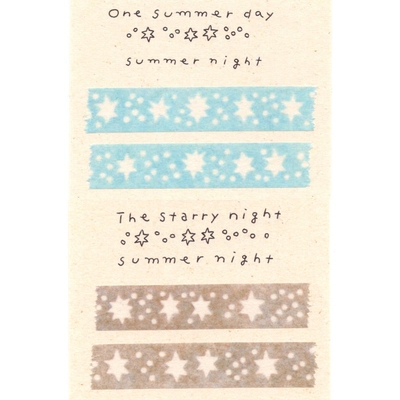 One summer day
summer night
The starry night
summer night